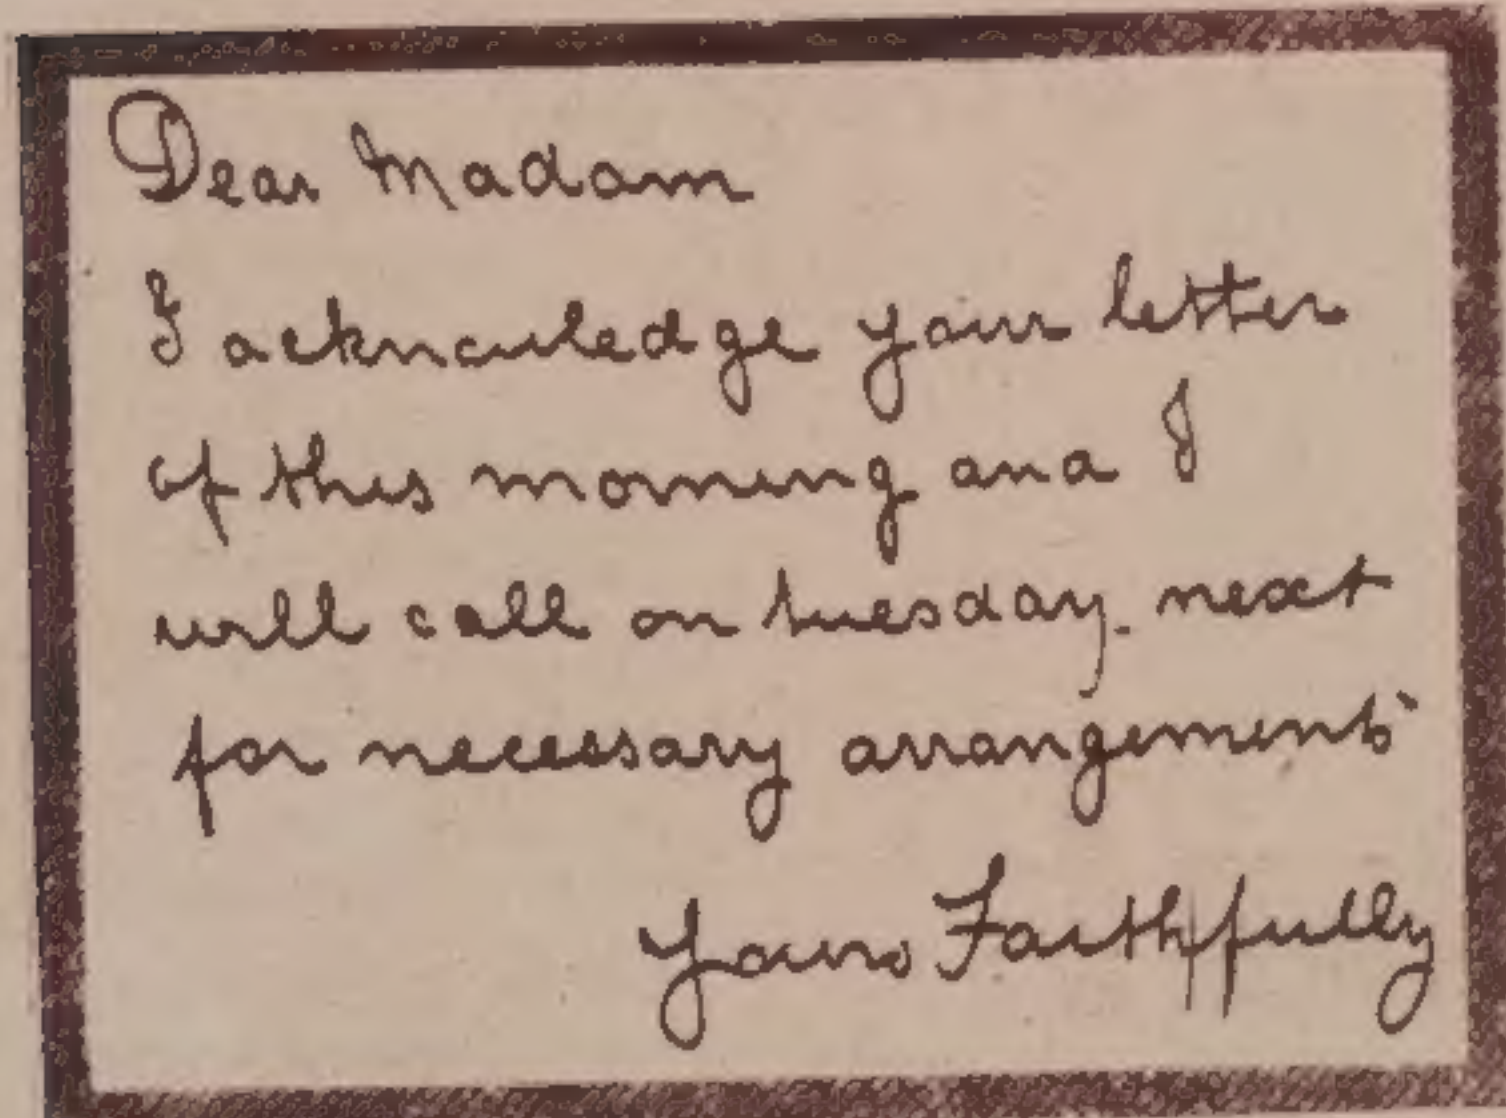 Dear Madam
I acknowledge your letter
of this morning and I
will call on tuesday. next
for necessary arrangements
Yours Faithfully